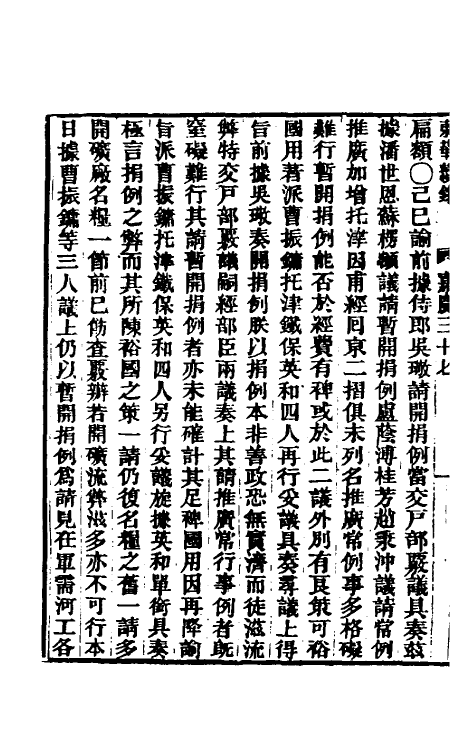 東華續錄 嘉慶三十七 一
扁額〇己巳諭前據侍郎吳璥請開捐例當交戶部嚴議具奏茲
據潘世恩蘇楞額議請暫開捐例盧蔭溥桂芳趙秉沖議請常例
推廣加增托津因甫經回京二摺俱未列名推廣常例事多格礙
難行暫開捐例能否於經費有裨或於此二議外別有良策可裕
國用著派曹振鏞托津鐵保英和四人再行妥議具奏尋議上得
旨前據吳璥奏開捐例朕以捐例本非善政恐無實濟而徒滋流
弊特交戶部嚴議嗣經部臣兩議奏上其請推廣常行事例者旣
窒礙難行其請暫開捐例者亦未能確計其足裨國用因再降諭
旨派曹振鏞托津鐵保英和四人另行妥議旋據英和單銜具奏
極言捐例之弊而其所陳裕國之策一請仍復名糧之舊一請多
開礦厰名糧一節前已飭查嚴辦若開礦流弊滋多亦不可行本
日據曹振鏞等三人議上仍以暫開捐例爲請見在軍需河工各